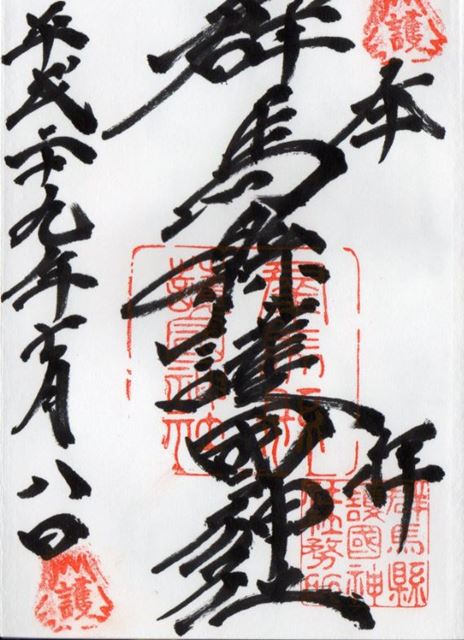 護
奉拝
群馬縣護國神社
群馬縣
護國神社
群馬縣
護國神
社務所
平成二十九年
月八日
護